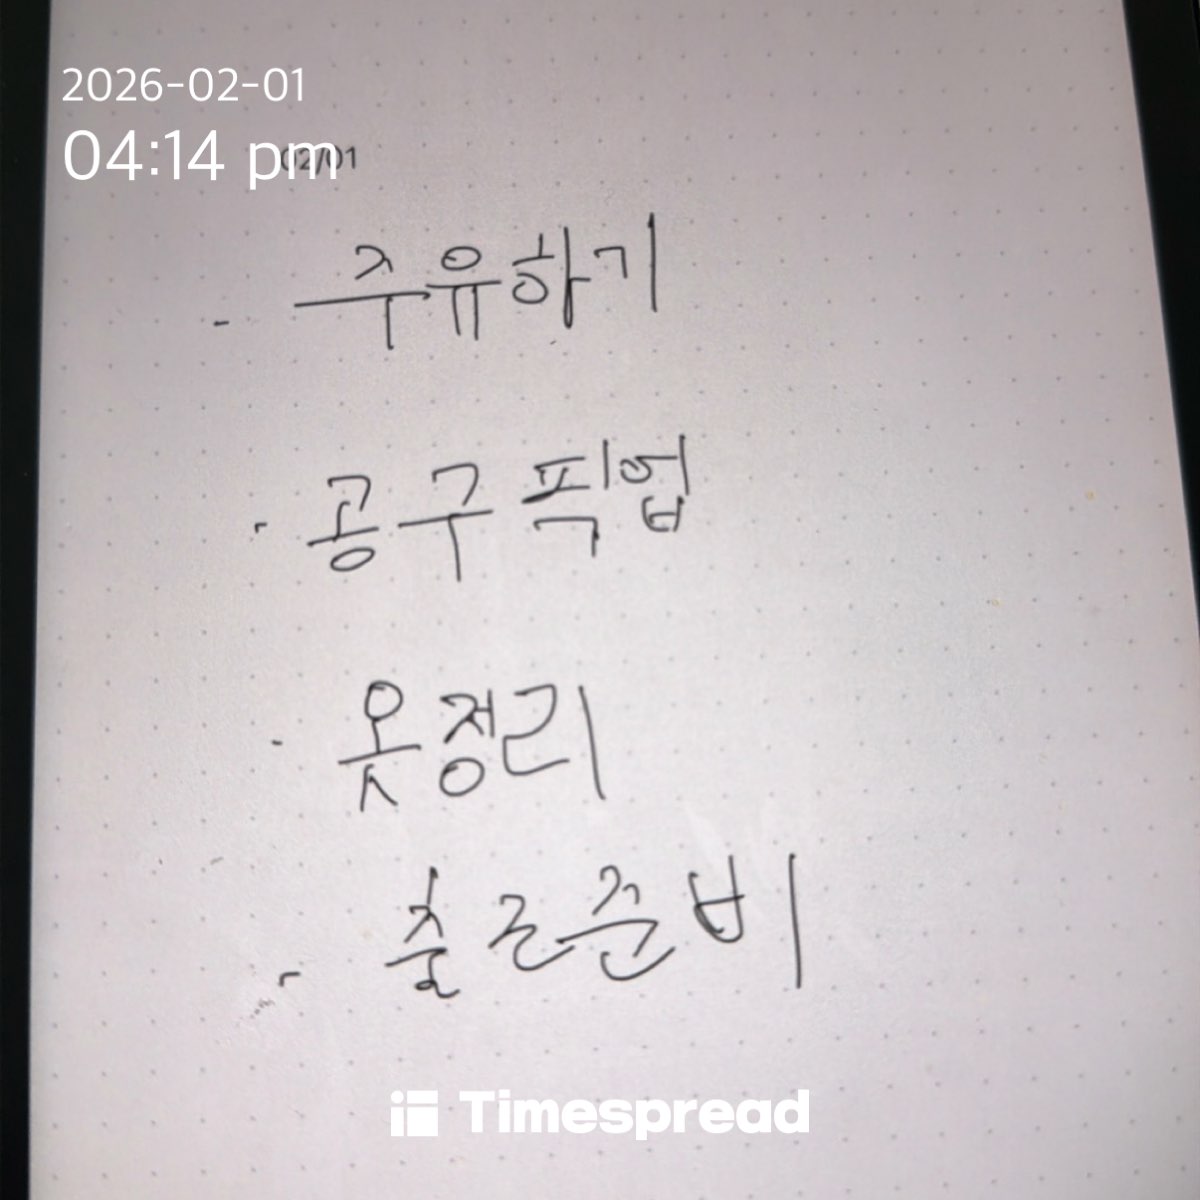 2026-02-01
04:14 pm
02/01
- 주유하기
- 공구픽업
- 옷정리
- 출근준비
Timespread